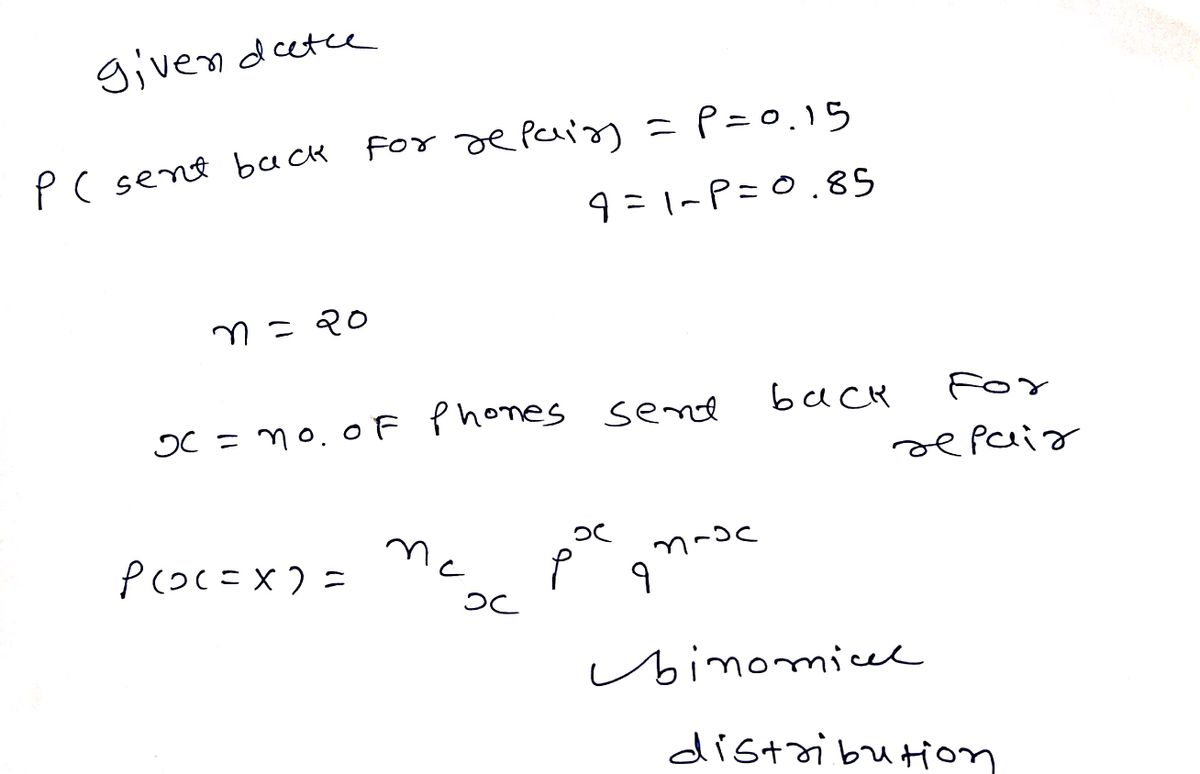 given data
P( sent back For repair) = P = 0.15
q = 1-P = 0.85
n = 20
x = no. oF Phones sent back For
repair
P(x = X) = ⁿCₓ pˣ qⁿ⁻ˣ
binomial
distribution